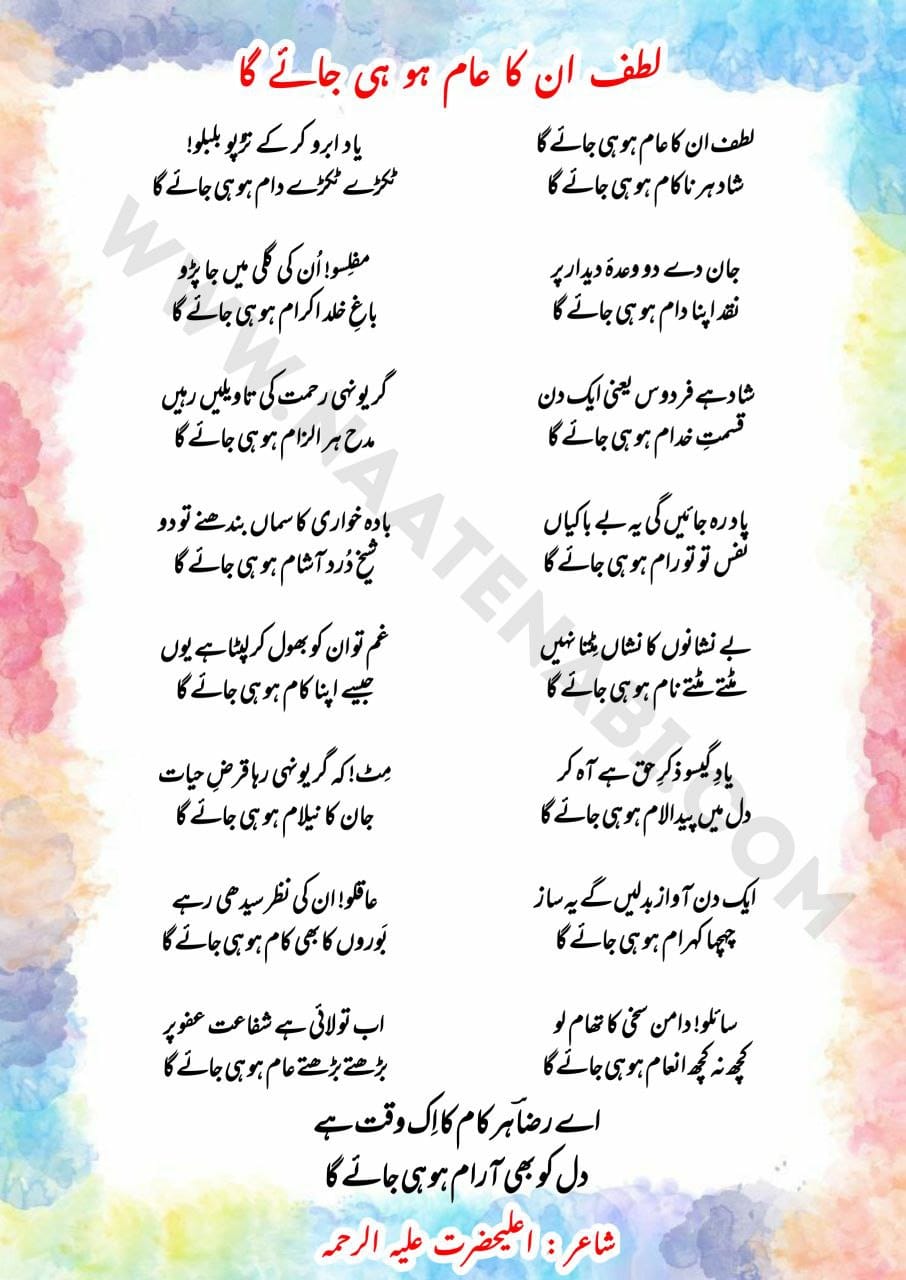 لطف ان کا عام ہو ہی جائے گا
لطف ان کا عام ہو ہی جائے گا
شاد ہر ناکام ہو ہی جائے گا
جان دے دو وعدۂ دیدار پر
نقد اپنا دام ہو ہی جائے گا
شاد ہے فردوس یعنی ایک دن
قسمتِ خدام ہو ہی جائے گا
یاد رہ جائیں گی یہ بے باکیاں
نفس تو تو رام ہو ہی جائے گا
بے نشانوں کا نشاں مٹتا نہیں
مٹتے مٹتے نام ہو ہی جائے گا
یادِ گیسو ذکرِ حق ہے آہ کر
دل میں پیدا لام ہو ہی جائے گا
ایک دن آواز بدلیں گے یہ ساز
چہچہا کہرام ہو ہی جائے گا
سائلو! دامن سخی کا تھام لو
کچھ نہ کچھ انعام ہو ہی جائے گا
یاد ابرو کر کے تڑپو بلبلو!
ٹکڑے ٹکڑے دام ہو ہی جائے گا
مفلِسو! اُن کی گلی میں جا پڑو
باغِ خلد اکرام ہو ہی جائے گا
گر یونہی رحمت کی تاویلیں رہیں
مدح ہر الزام ہو ہی جائے گا
بادہ خواری کا سماں بندھنے تو دو
شیخ دُرد آشام ہو ہی جائے گا
غم تو ان کو بھول کر لپٹا ہے یوں
جیسے اپنا کام ہو ہی جائے گا
مِٹ! کہ گر یونہی رہا قرضِ حیات
جان کا نیلام ہو ہی جائے گا
عاقلو! ان کی نظر سیدھی رہے
بَوروں کا بھی کام ہو ہی جائے گا
اب تو لائی ہے شفاعت عفو پر
بڑھتے بڑھتے عام ہو ہی جائے گا
اے رضاؔ ہر کام کا اِک وقت ہے
دل کو بھی آرام ہو ہی جائے گا
شاعر : اعلیٰحضرت علیہ الرحمہ
WWW.NAATENABI.COM